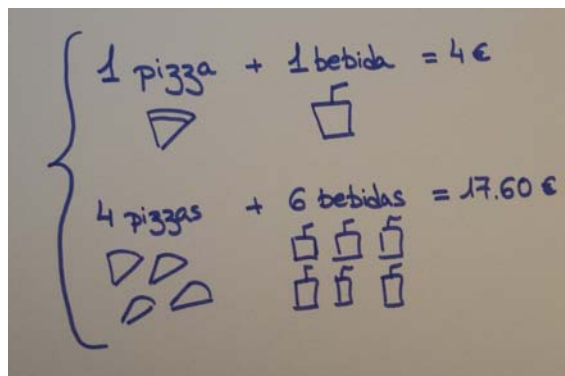 1 pizza + 1 bebida = 4 €
4 pizzas + 6 bebidas = 17.60 €